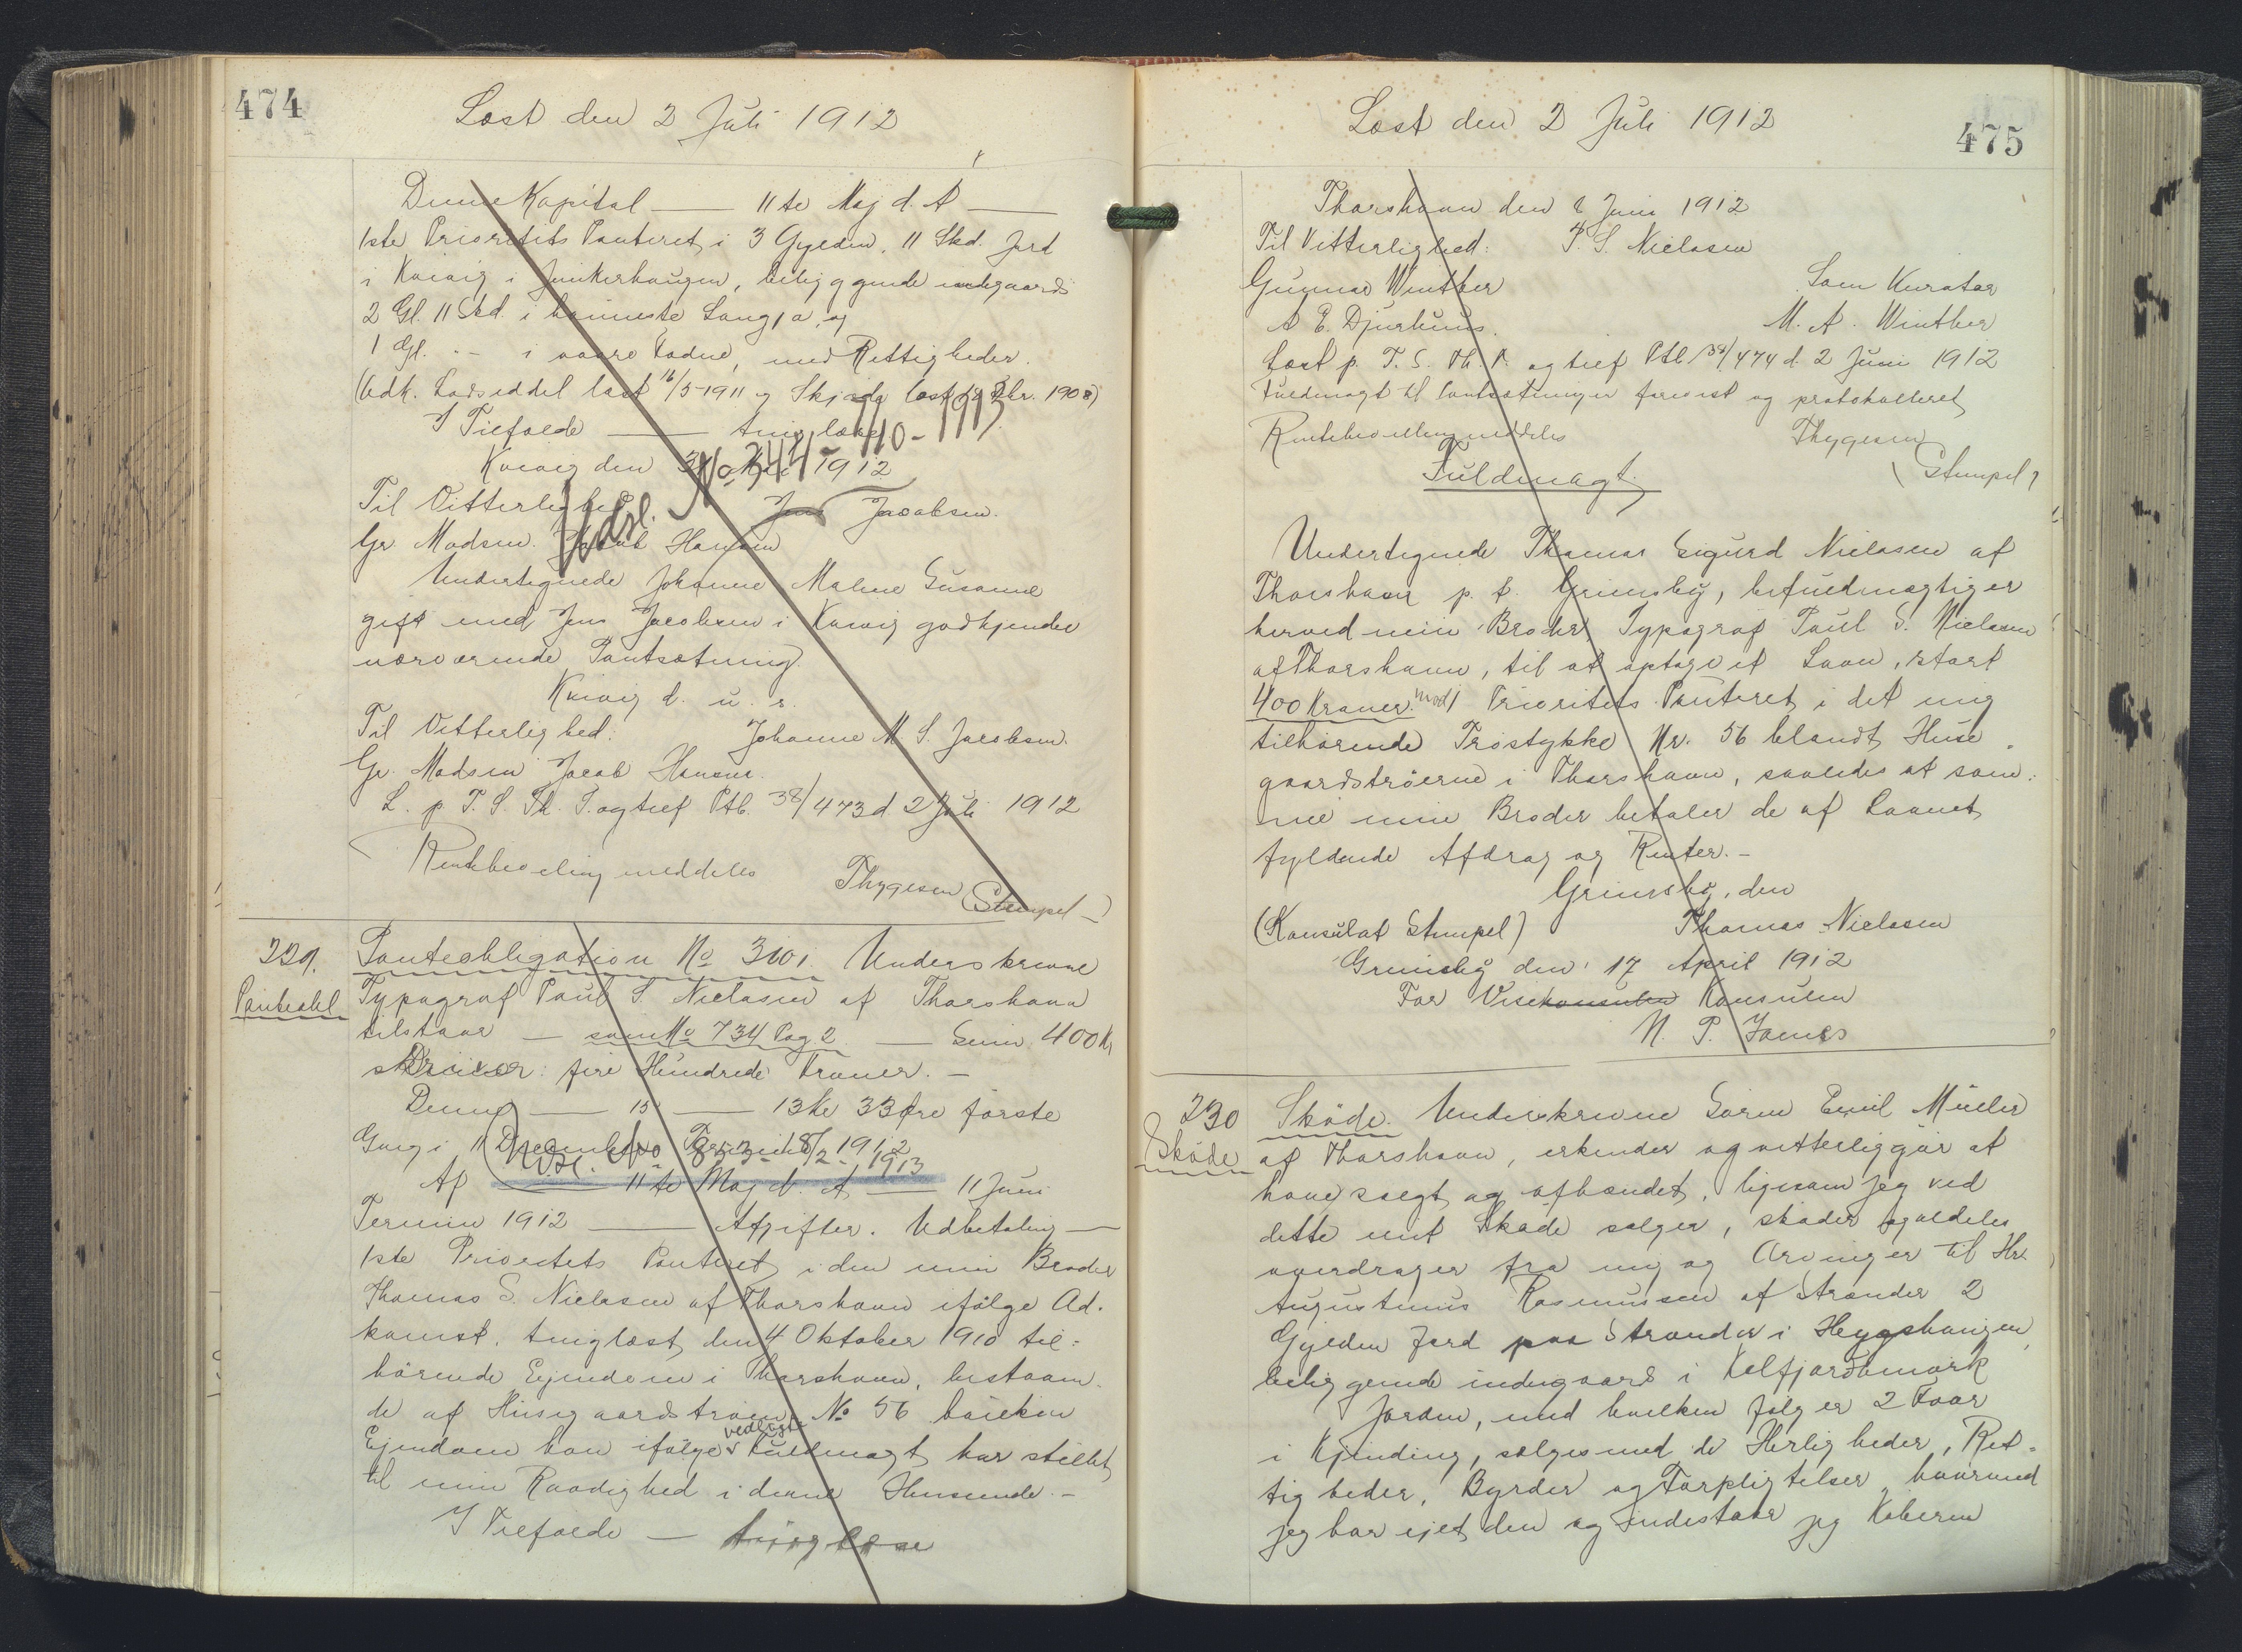 474
Læst den 2 Juli 1912
Denne Kapital — 11te Maj d. A —
1ste Prioritets Panteret i 3 Gylden, 11 Skd. Jord
i Kvivig i Junkerhaugen, beliggende indegaards
2 Gl. 11 Skd. i
1 Gl. " – i med Rettigheder.
(Udk. Lodseddel læst 16/5-1911 og Skjøde læst 1908)
I Tilfælde — tinglæse
Kvivig den 31 Mai 1912
Udsl. No 244 - 7/10-1913
Til Vitterlighed Jens Jacobsen.
Gr. Madsen. Jacob Hansen
Undertegnede Johanne Malene Susanne
gift med Jens Jacobsen i Kvivig godkjender
nærværende Pantsætning.
Kvivig d. u. s.
Til Vitterlighed: Johanne M S. Jacobsen.
Gr. Madsen Jacob Hansen.
L. p T. S. Th. P. og tilf Ptb. 38/473 d 2 Juli 1912
Rentebevilling meddeles Thygesen (Stempel)
229. Panteobligation No 3101. Underskrevne
Panteobl. Typograf Paul S. Nielasen af Thorshavn
tilstaar — som No 734 Pag. 2. — Sum 400 Kr
skriver: fire Hundrede Kroner. —
Denne — 15 — 13 Kr 33 Øre første
Gang i 11 December Termin 1912
Udsl. No 853 - 18/2 - 1913
Af — 11te Maj d. A — 11 Juni
Termin 1912 — Afgifter. Udbetaling —
1ste Prioritets Panteret i den min Broder
Thomas S. Nielasen af Thorshavn ifølge Ad-
komst, tinglæst den 4 Oktober 1910 til-
hørende Ejendom i Thorshavn, bestaaen-
de af Husegaardstrøen No 56 hvilken
Ejendom han ifølge vedlagte Fuldmagt har stillet
til min Raadighed i denne Henseende. —
I Tilfælde — tinglæse
Læst den 2 Juli 1912
475
Thorshavn den 8 Juni 1912
Til Vitterlighed: P. S. Nielasen
Gunnar Winther Som Kurator
A E. Djurhuus. M. A. Winther
Læst p. T. S. Th. P. og tilf Ptb 38/474 d. 2 Juni 1912
Fuldmagt til Pantsætningen forevist og protokolleret
Rentebevilling meddeles Thygesen
(Stempel)
Fuldmagt.
Undertegnede Thomas Sigurd Nielasen af
Thorshavn p. t. Grimsby, befuldmægtiger
herved min Broder, Typograf Paul S. Nielasen
af Thorshavn, til at optage et Laan, stort
400 Kroner. mod 1 Prioritets Panteret i det mig
tilhørende Trøstykke Nr. 56 blandt Huse-
gaardstrøerne i Thorshavn, saaledes at som-
me min Broder betaler de af Laanet
fyldende Afdrag og Renter. —
Grimsby, den
(Konsulat Stempel) Thomas Nielasen
Grimsby den 17 April 1912
For Visekonsulen Konsulen
N. P. James
230 Skøde. Underskrevne Søren Emil Müller
Skøde af Thorshavn, erkender og vitterliggør at
have solgt og afhændet, ligesom jeg ved
dette mit Skøde sælger, skøder og aldeles
overdrager fra mig og Arvinger til Hr.
Augustinus Rasmussen af Strænder 2
Gylden Jord paa Strænder i Heygshaugen,
beliggende indegaard i Kolfjordsmørk
Jorden, med hvilken følger 2 Faar
i Kjending, sælges med de Herligheder, Ret-
tigheder, Byrder og Forpligtelser, hvormed
jeg har ejet den og indestaar jeg Køberen